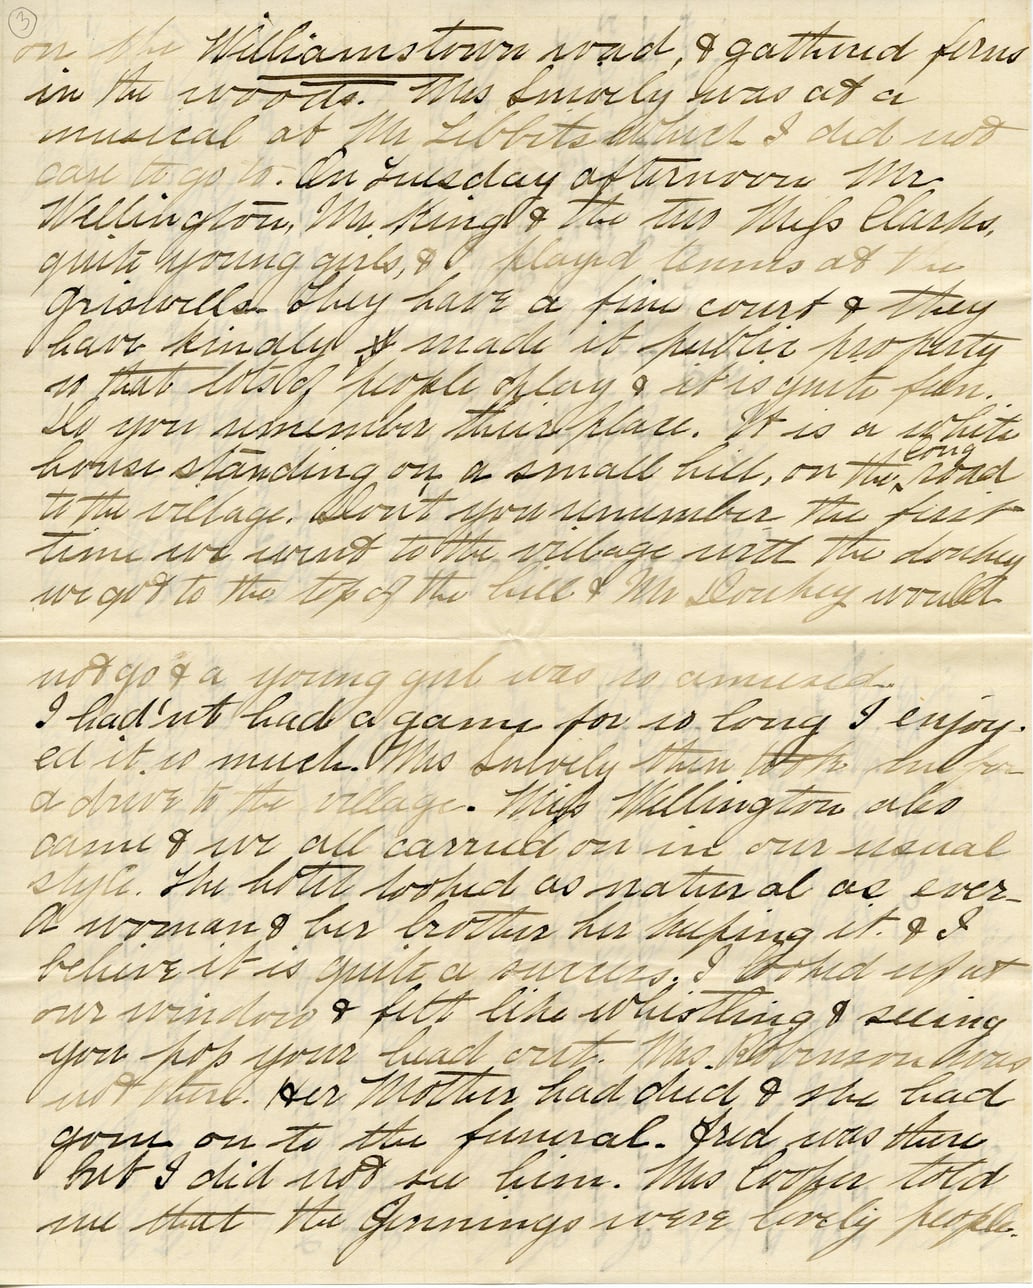 3
on the Williamstown road, & gathered ferns
in the woods. Mrs Snively was at a
musical at Mr Tibbits which I did not
care to go to. On Tuesday afternoon Mr
Wellington, Mr. King & the two Miss Clarks,
quite young girls, & I played tennis at the
Griswells. They have a fine court & they
have kindly made it public property
so that lots of people play & it is quite fun.
Do you remember their place. It is a white
house standing on a small hill, on the long road
to the village. Don't you remember the first
time we went to the village with the donkey
we got to the top of the hill & Mr Donkey would
not go & a young girl was so amused.
I had'nt had a game for so long I enjoy-
ed it so much. Mrs Snively then took me for
a drive to the village. Miss Wellington also
came & we all carried on in our usual
style. The hotel looked as natural as ever-
A woman & her brother her keeping it. & I
believe it is quite a success. I looked up at
our window & felt like whistling & seeing
you pop your head out. Mrs. Robinson was
not there. Her Mother had died & she had
gone on to the funeral. Fred was there
but I did not see him. Mrs Cooper told
me that the Jennings were lovely people.